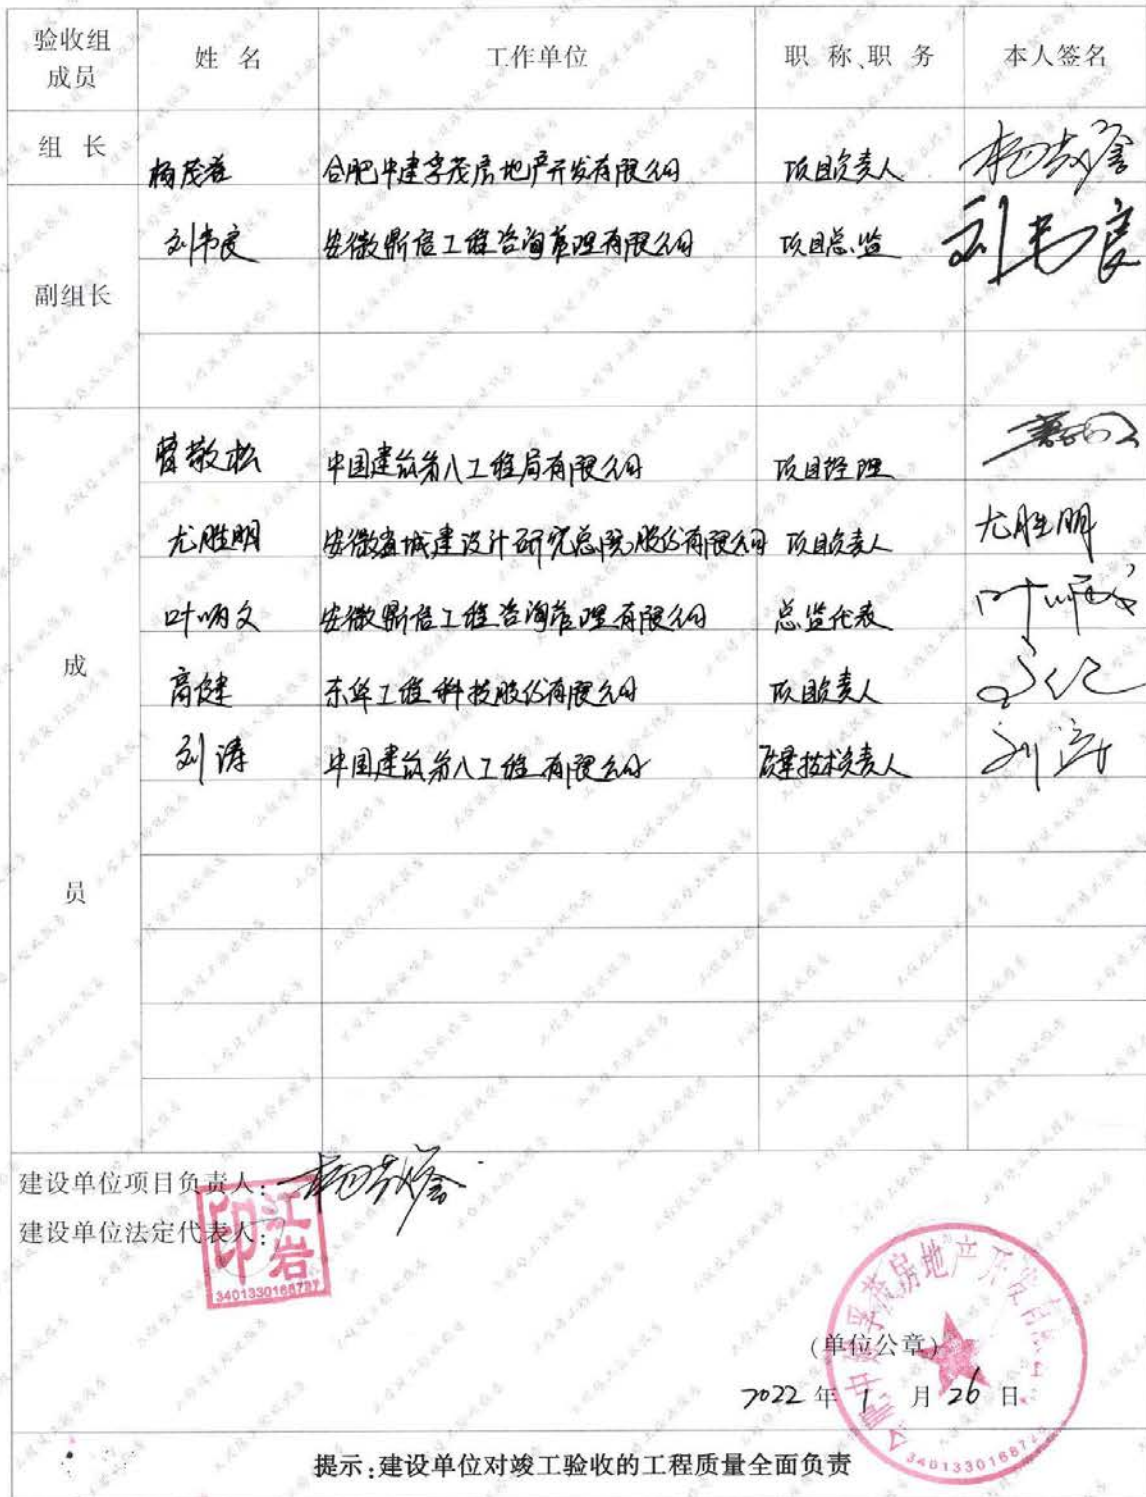 验收组成员 姓 名 工作单位 职 称、职 务 本人签名
组 长 合肥中建孚茂房地产开发有限公司 项目负责人
副组长 刘韦良 安徽鼎信工程咨询管理有限公司 项目总监 刘韦良
成员
曹敬松 中国建筑第八工程局有限公司 项目经理
尤胜明 安徽省城建设计研究总院股份有限公司 项目负责人 尤胜明
叶炳文 安徽鼎信工程咨询管理有限公司 总监代表
高健 东华工程科技股份有限公司 项目负责人
刘涛 中国建筑第八工程有限公司 质量技术负责人 刘涛
建设单位项目负责人:
建设单位法定代表人:
江岩印
(单位公章)
2022 年 1 月 26 日
提示:建设单位对竣工验收的工程质量全面负责